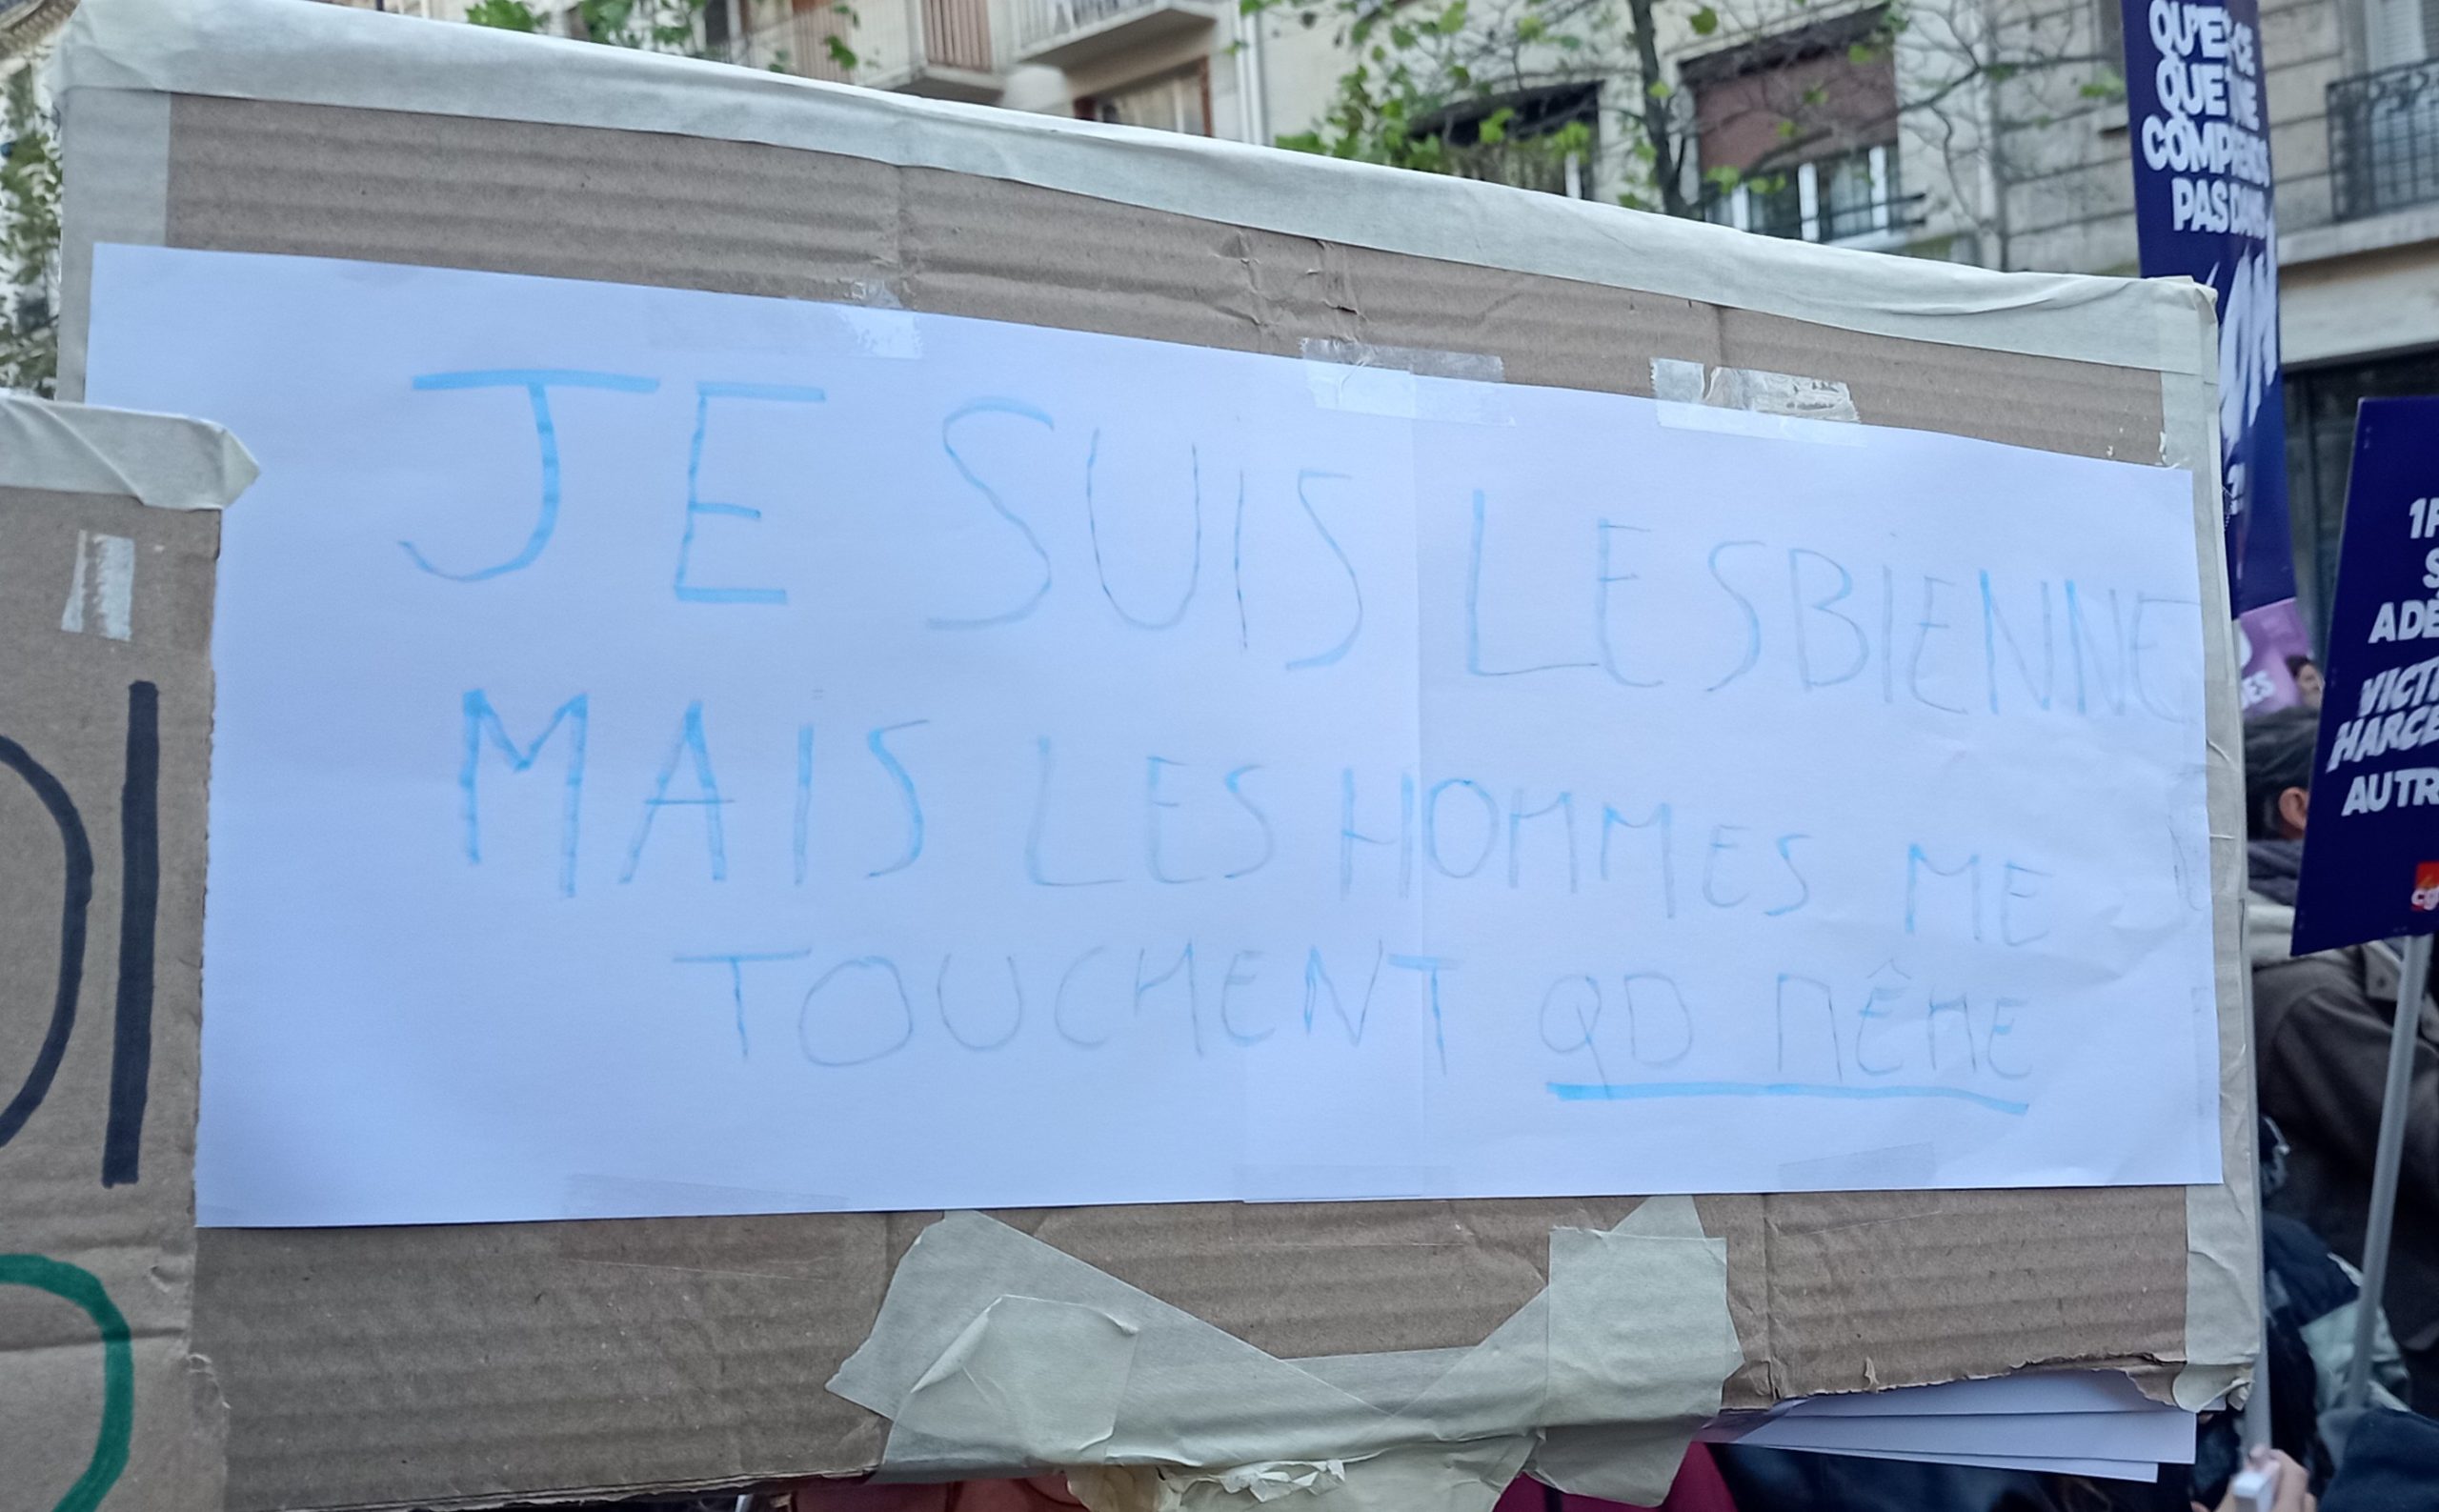 JE SUIS LESBIENNE
MAIS LES HOMMES ME
TOUCHENT QD MÊME
QU'EST-CE
QUE
COMPRENDS
PAS DANS
ADÈ
AUTR
cgt